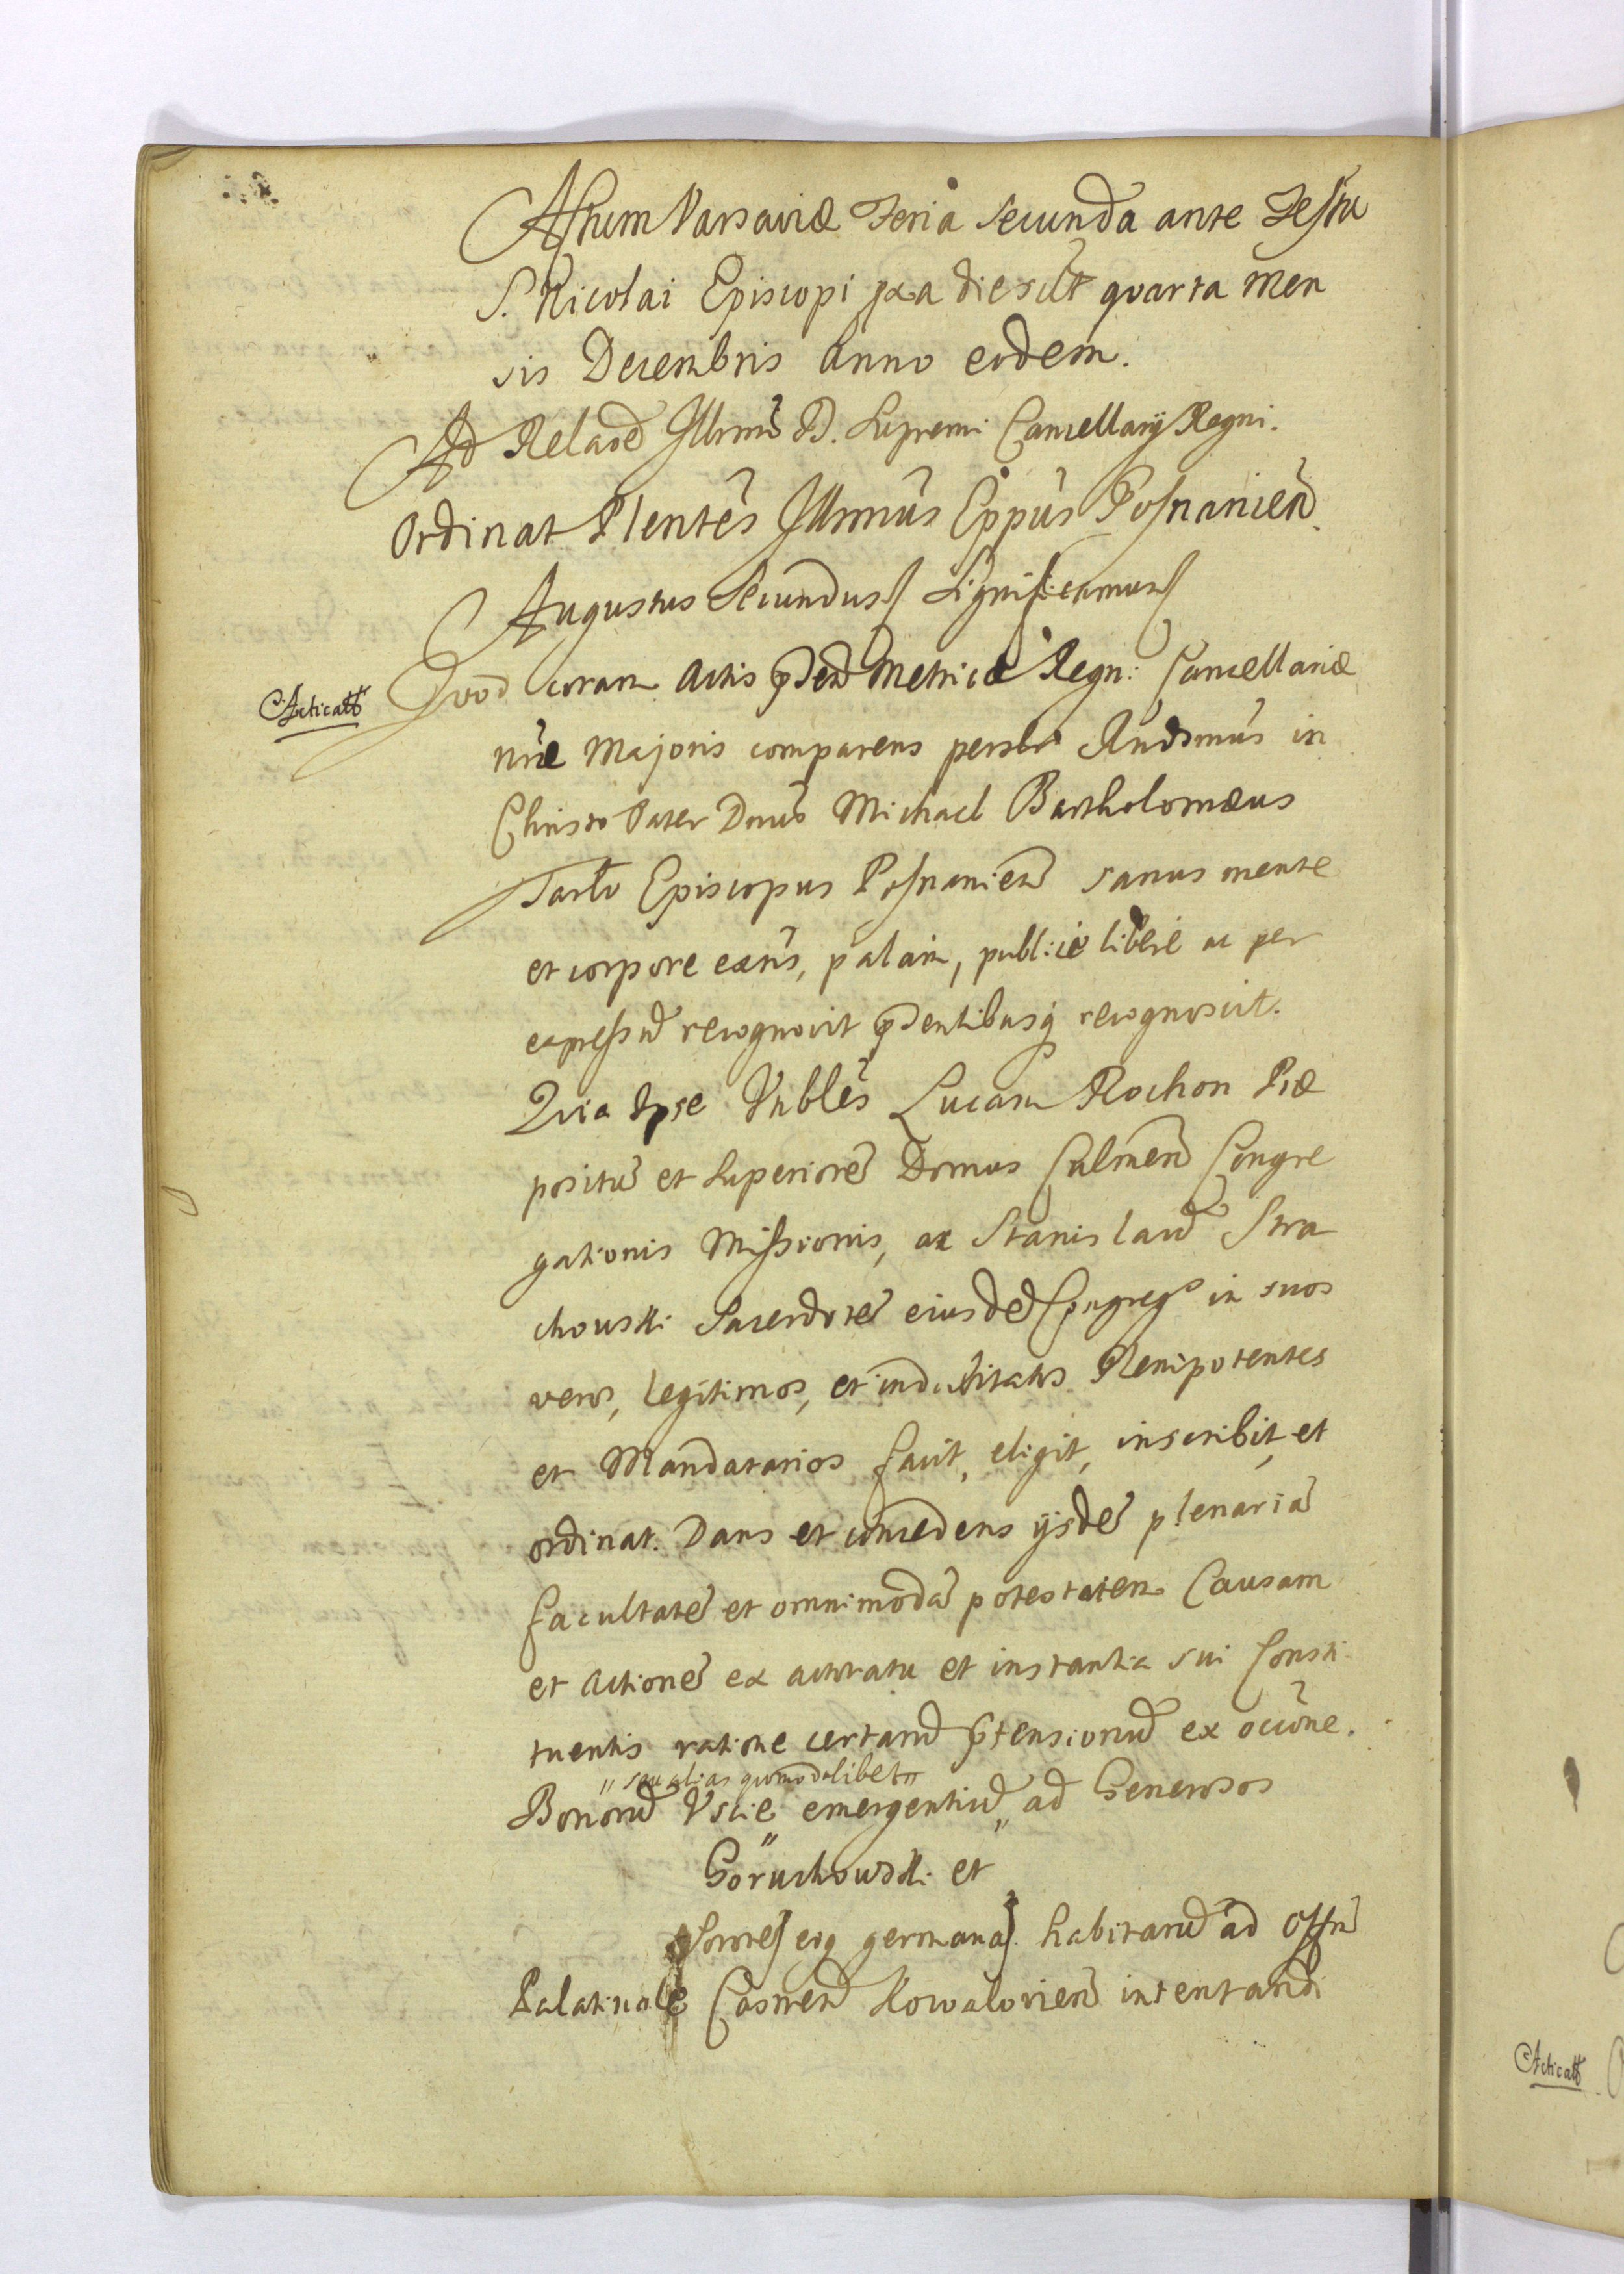 Actum Varsaviæ Feria Secunda ante Festu
S. Nicolai Episcopi die scilt quarta Men
sis Decembris Anno eodem.
Ad Relaõe Illrmi D. Supremi Cancellarij Regni.
Ordinat Plentes Illrmus Eppus Posnanien.
Augustus Secundus Significamus
Acticatt
Quod coram Actis pñten Metricæ Regn: Cancellariæ
nræ Majoris comparens personlr Rndsmus in
Christo Pater Dnus Michael Bartholomæus
Tarlo Episcopus Posnanien sanus mente
et corpore exñs, palam, publice libere ac per
expressu recognovit pñtentibusq recognoscit.
Quia Ipse Vnbles Lucam Rochon Præ
positu et Superiore Domus Culmen Congre
gationis Missionis, ac Stanislau Stra
chouski Sacerdote eiusde Congregs in suos
veros, legitimos, et indubitatos Plenipotentes
et Mandatarios facit, eligit, inscribit, et
ordinat. Dans et concedens ijsde plenaria
facultate et omnimoda potestatem Causam
et Actione ex actoratu et instantia sui Consti
tuentis ratione certaru prtensionu ex occõne.
"seu alias quomodolibet"
Bonoru Vscie emergentiu " ad Generosos
Goruchowski et
Sorores eiq germanas habitaru ad Offm
Palatinale Castren Kowalovien intentandi
Acticatt